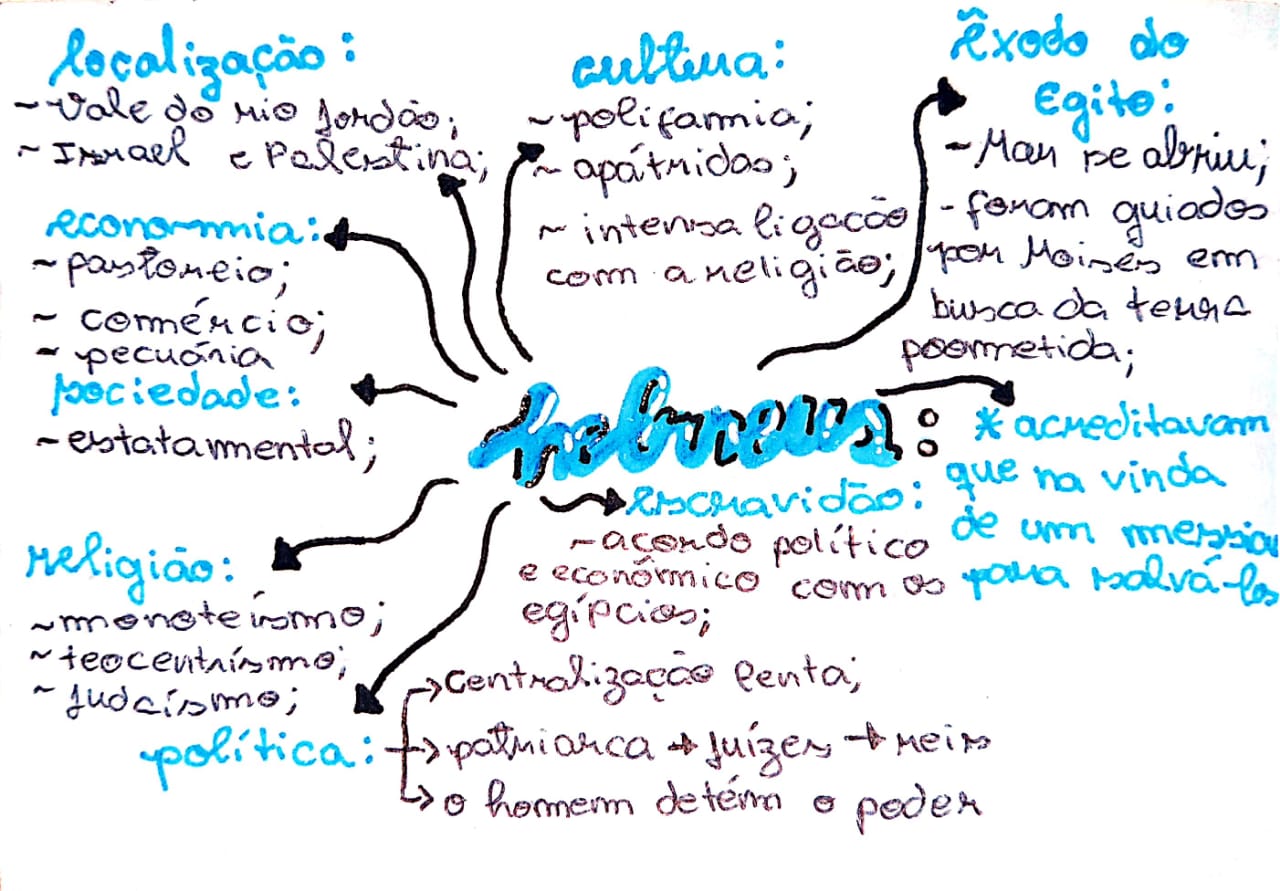 localização:
~ Vale do rio Jordão;
~ Israel e Palestina;
cultura:
~ poligamia;
~ apátridas;
~ intensa ligação
com a religião;
Êxodo do
Egito:
- Mar se abriu;
- foram guiados
por Moisés em
busca da terra
poormetida;
economia:
~ pastoreio;
~ comércio;
~ pecuária
sociedade:
~ estatamental;
hebreus:
* acreditavam
que na vinda
de um messias
para salvá-los
escravidão:
- acordo político
e econômico com os
egípcios;
religião:
~ monoteísmo;
~ teocentrísmo;
~ Judaísmo;
política:
→ centralização lenta;
→ patriarca → Juízes → reis
→ o homem detém o poder